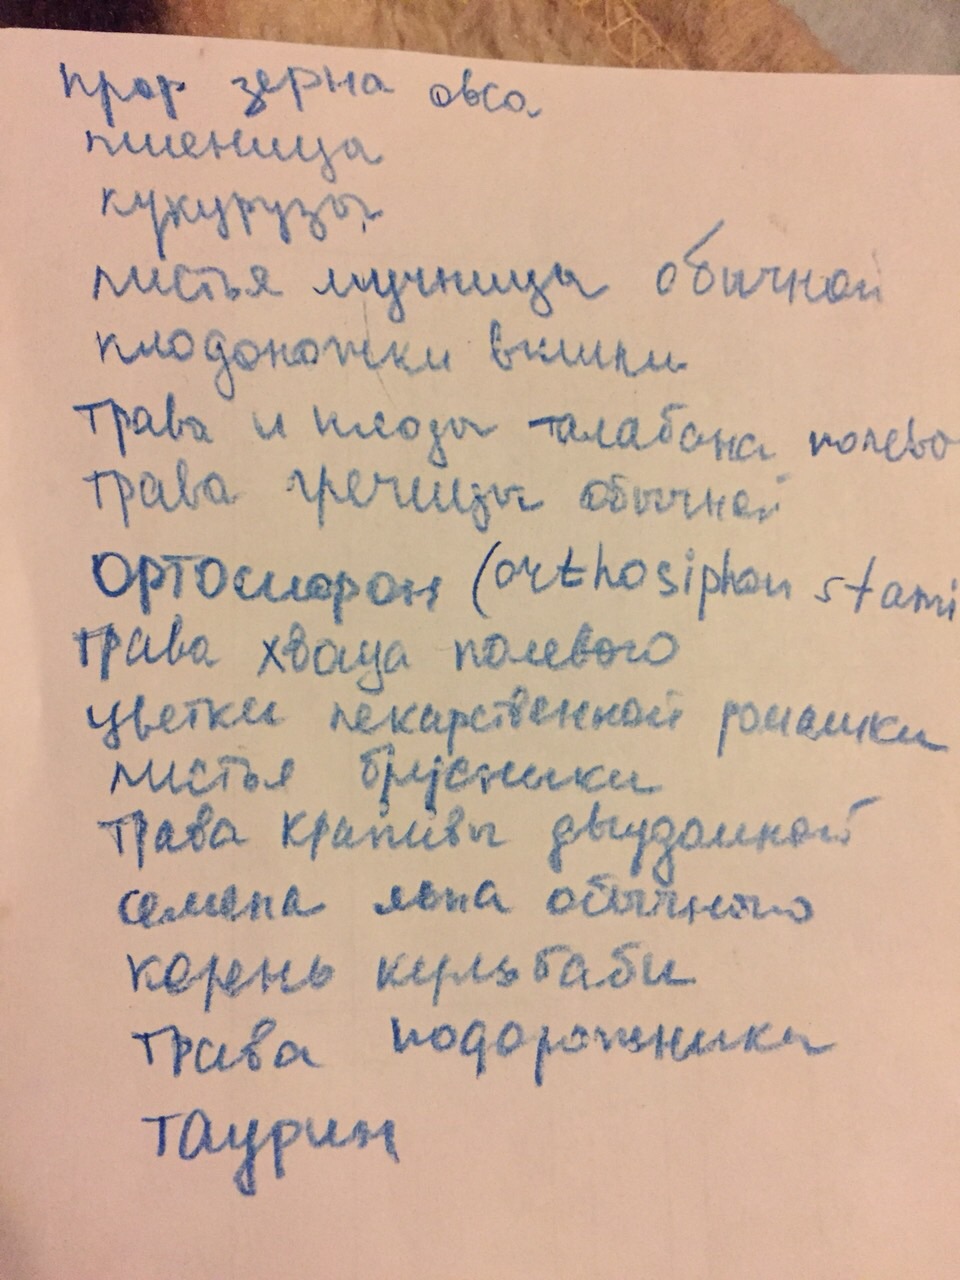 прор зерна овса
пшеница
кукурузы
листья мучницы обычной
плодоножки вишни
трава и плоды талабана полево
трава гречицы обычной
ортосифон (orthosiphon stami
трава хваща полевого
цветки лекарственной ромашки
листья брусники
трава крапивы двудомной
семена льна обычного
корень кульбабы
трава подорожника
таурин